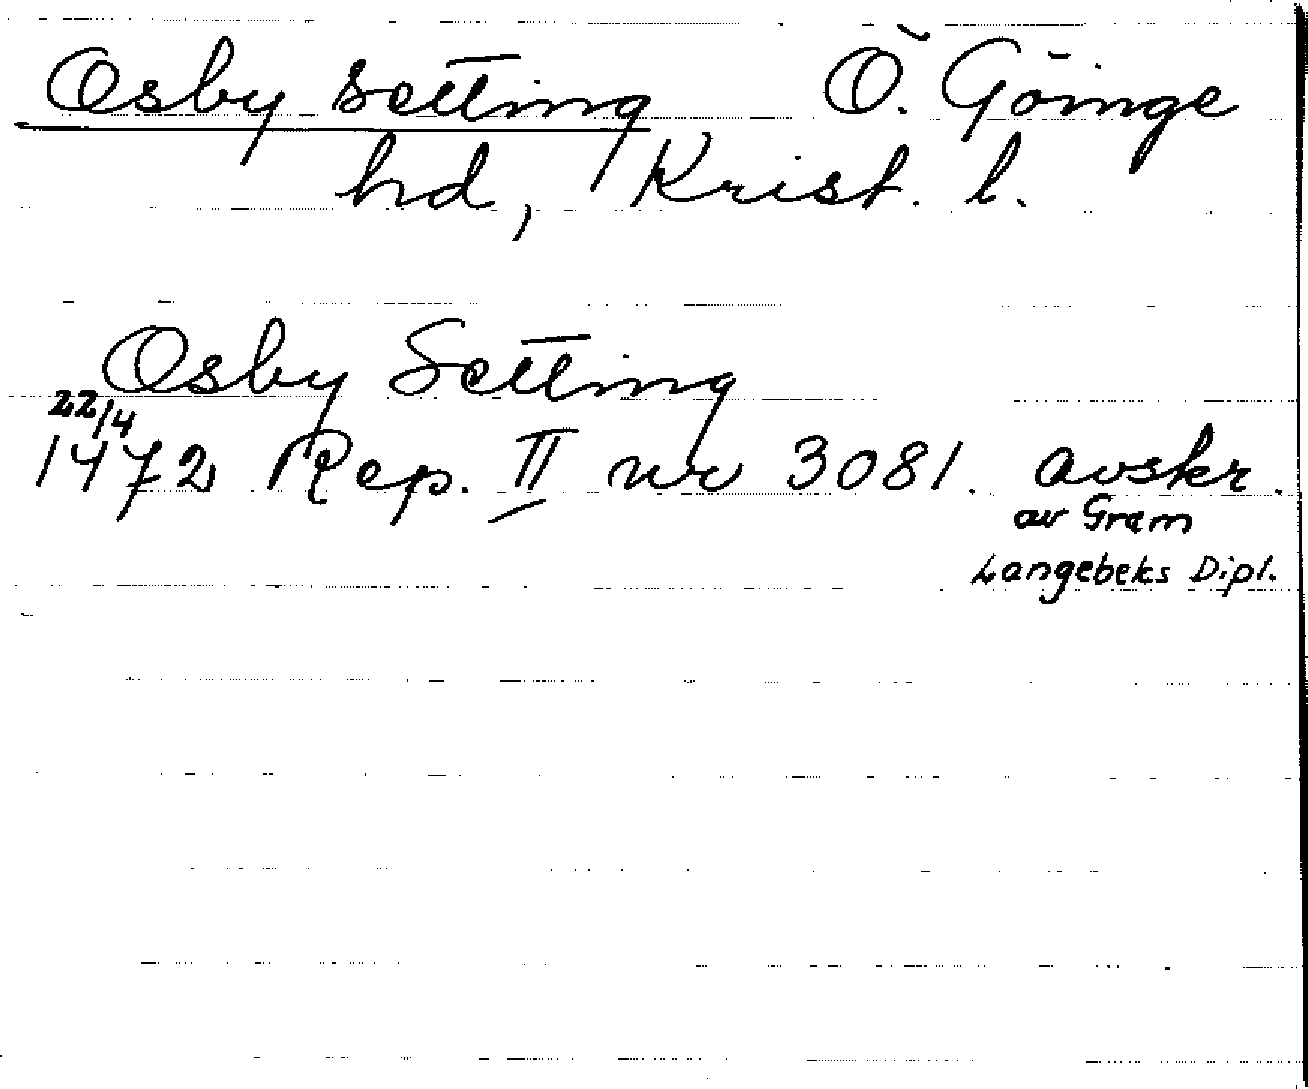 Osby setting Ö. Göinge
hd, Krist. l.
Osby Setting
22/4
1472 Rep. II nr 3081. avskr.
av Gram
Langebeks Dipl.